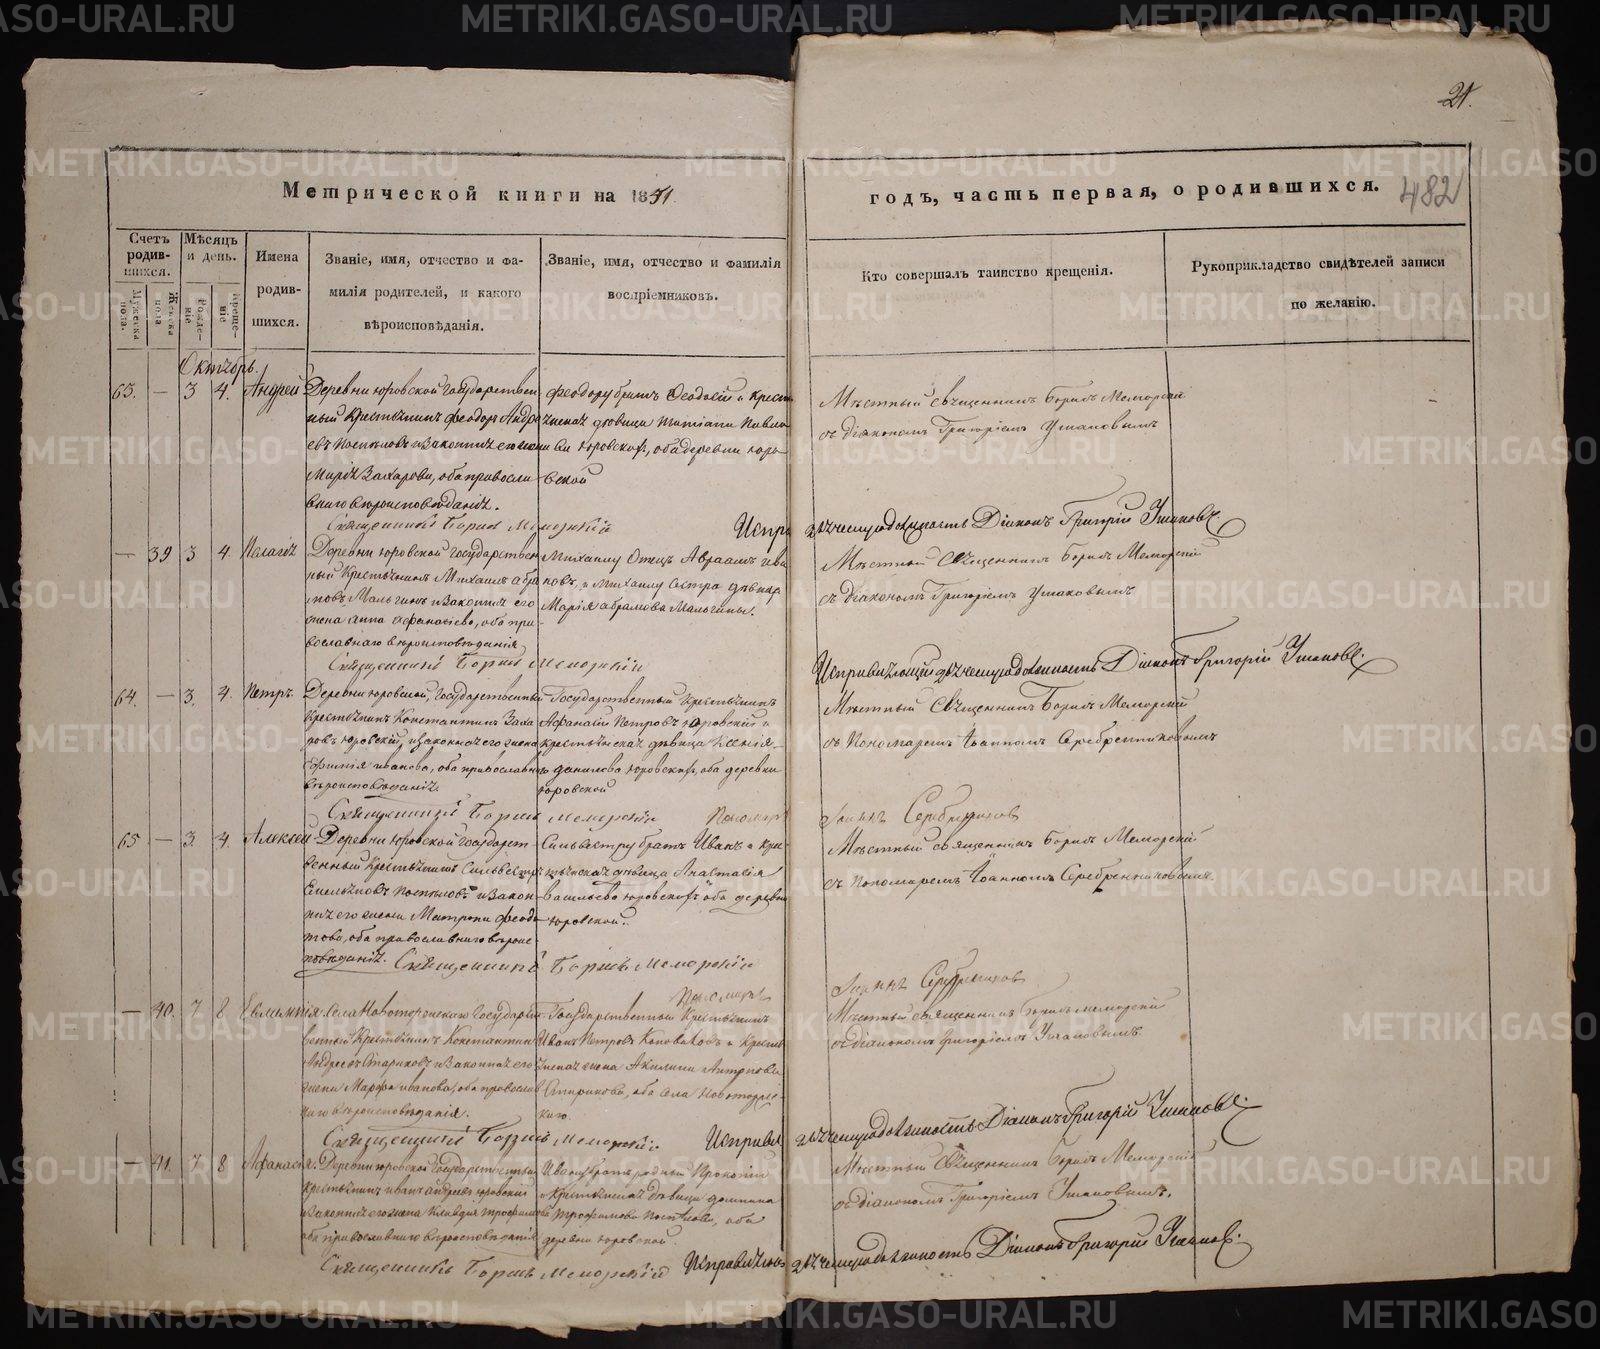 METRIKI.GASO-URAL.RU
21.
482
Метрической книги на 1851
годъ, часть первая, о родившихся.
Счетъ родив-шихся.
Мужеска пола.
Женска пола
Мѣсяцъ и день.
Рожде-ніе
Креще-ніе
Имена родив-шихся.
Званіе, имя, отчество и фа-
милія родителей, и какого
вѣроисповѣданія.
Званіе, имя, отчество и фамилія
воспріемниковъ.
Кто совершалъ таинство крещенія.
Рукоприкладство свидѣтелей записи
по желанію.
Октябрь.
63. — 3 4. Андрей
Деревни Юровской Государствен
ный Крестьянинъ Феодоръ Андре
евъ Постыловъ и законная его жена
Марія Захарова, оба православ
наго вѣроисповѣданія.
Феодору братъ Феодосій и крест
вская девица Павло
ва Юровскихъ, оба деревни Юро
вской
Мѣстный священникъ Борисъ Меморскій
съ діакономъ Григоріемъ Ушаковымъ
Священникъ Борисъ Меморскій
должность Діаконъ Григорій Ушаковъ
— 39 3 4. Пелагія
Деревни Юровской Государствен
ный Крестьянинъ Михаилъ Абра
мовъ Мальгинъ и законная его
жена Анна Афанасіева, оба пра
вославнаго вѣроисповѣданія
Михаилу Отецъ Авраамъ Ива
новъ, и Михаилу сестра девица
Марія Абрамова Мальгины.
Мѣстный Священникъ Борисъ Меморскій
съ діакономъ Григоріемъ Ушаковымъ
Священникъ Борисъ Меморскій
Исправляющій должность Діаконъ Григорій Ушаковъ.
64. — 3. 4. Петръ.
Деревни Юровской, Государственный
Крестьянинъ Константинъ Заха
ровъ Юровскій, и законная его жена
Иванова, оба православнаго
вѣроисповѣданія.
Государственный Крестьянинъ
Афанасій Петровъ Юровскій и
крестьянская девица Ксенія
Данилова Юровскихъ, оба деревни
Юровской
Мѣстный Священникъ Борисъ Меморскій
съ Пономаремъ Іоанномъ Серебренниковымъ
Священникъ Борисъ Меморскій
Іоаннъ Серебренниковъ
65 — 3. 4. Алексей
Деревни Юровской Государст-
венный Крестьянинъ Сильвестръ
Емельяновъ Постыловъ и закон-
ная его жена Матрона Федо
това, оба православнаго вѣроис-
повѣданія.
Сильвестру братъ Иванъ и кре
стьянская девица Анастасія
Васильева Юровскихъ оба деревни
Юровской.
Мѣстный священникъ Борисъ Меморскій
съ Пономаремъ Іоанномъ Серебренниковымъ.
Священникъ Борисъ Меморскій
Іоаннъ Серебренниковъ
— 40. 7 8 Евлампія.
Села Новоторжскаго Государст
венный Крестьянинъ Константинъ
Андреевъ Стариковъ и законная его
жена Марфа Иванова, оба православ
наго вѣроисповѣданія.
Государственный Крестьянинъ
Иванъ Петровъ Коноваловъ и крестья
нская жена Акилина Антропова
Старикова, оба села Новоторжс-
каго.
Мѣстный священникъ Борисъ Меморскій
съ діакономъ Григоріемъ Ушаковымъ.
Священникъ Борисъ Меморскій
должность Діаконъ Григорій Ушаковъ.
— 41. 7 8 Афанасія.
Деревни Юровской Государственный
Крестьянинъ Иванъ Андреевъ Юровскій
и законная его жена Клавдія Трофимова
оба православнаго вѣроисповѣданія
Ивану братъ родный Прокопій
и Крестьянская девица Домника
Трофимова Постылова, оба
деревни Юровской.
Мѣстный Священникъ Борисъ Меморскій
съ діакономъ Григоріемъ Ушаковымъ.
Священникъ Борисъ Меморскій
Исправляющій должность Діаконъ Григорій Ушаковъ.